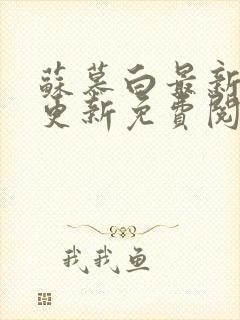 蘇慕白最新
更新免費閱
我我鱼